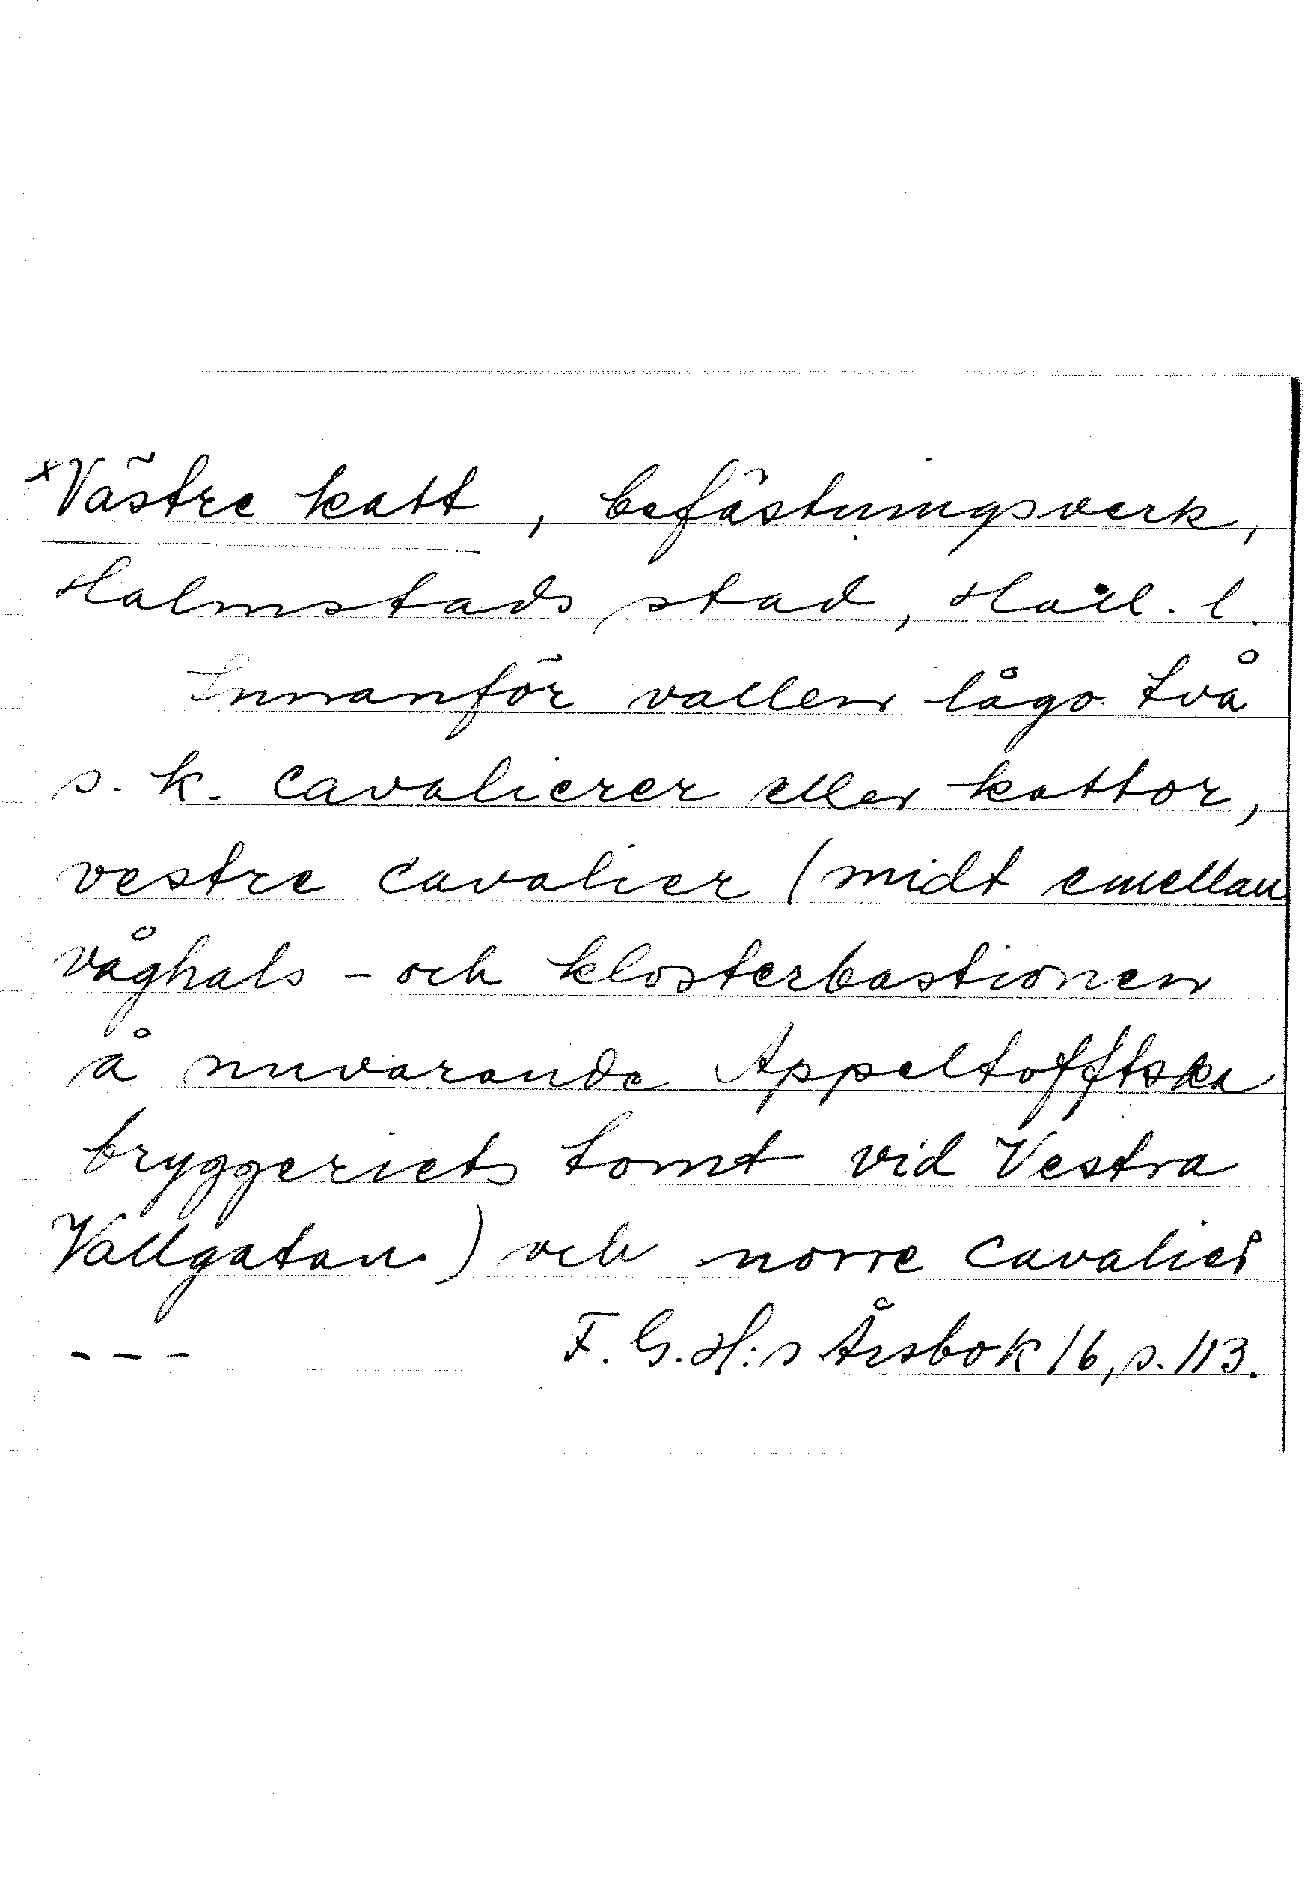 ×Västre katt, befästningsverk,
Halmstads stad, Hall. l.
Innanför vallen lågo två
s. k. cavalierer eller kattor,
vestre cavalier (midt emellan
våghals- och klosterbastionen
å nuvarande Appeltofftska
bryggeriets tomt vid Vestra
Vallgatan) och norre cavalier
--- F. G. H:s Årsbok 16, s. 113.